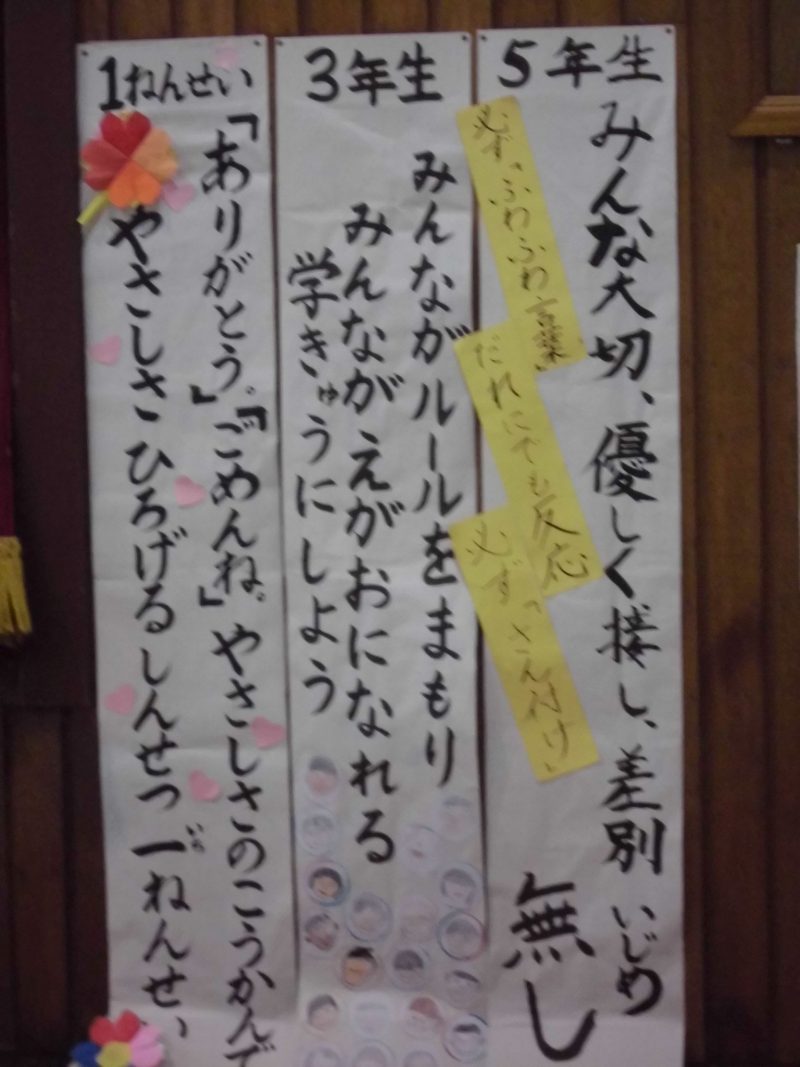 5年生
みんな大切、優しく接し、差別いじめ
無し
必ず〝ふわふわ言葉〟
だれにでも反応
必ず〝さん付け〟
3年生
みんながルールをまもり
みんながえがおになれる
学きゅうにしよう
1ねんせい
「ありがとう。」「ごめんね。」やさしさのこうかんで
やさしさひろげるしんせつ一ねんせ
いち